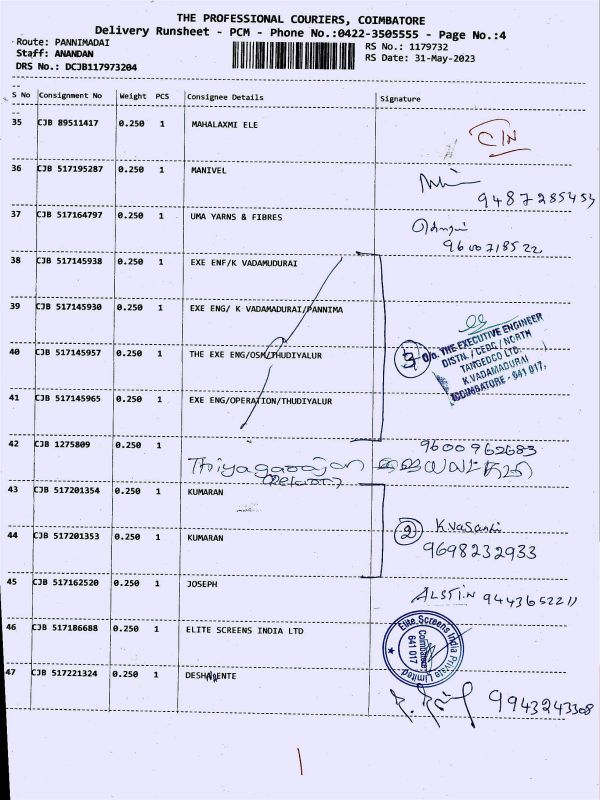 THE PROFESSIONAL COURIERS, COIMBATORE
Delivery Runsheet - PCM - Phone No.:0422-3505555 - Page No.:4
Route: PANNIMADAI
Staff: ANANDAN
DRS No.: DCJB117973204
RS No.: 1179732
RS Date: 31-May-2023
S No Consignment No Weight PCS Consignee Details Signature
35 CJB 89511417 0.250 1 MAHALAXMI ELE
36 CJB 517195287 0.250 1 MANIVEL
9487285453
37 CJB 517164797 0.250 1 UMA YARNS & FIBRES
9600718522
38 CJB 517145938 0.250 1 EXE ENF/K VADAMUDURAI
39 CJB 517145930 0.250 1 EXE ENG/ K VADAMADURAI/PANNIMA
40 CJB 517145957 0.250 1 THE EXE ENG/OSM/THUDIYALUR
3
O/o. THE EXECUTIVE ENGINEER
DISTN. / CEDC / NORTH
TANGEDCO LTD.
K.VADAMADURAI
COIMBATORE - 641 017.
41 CJB 517145965 0.250 1 EXE ENG/OPERATION/THUDIYALUR
42 CJB 1275809 0.250 1
9600962683
Thiyagarajan
43 CJB 517201354 0.250 1 KUMARAN
2 K Vasanti
9698232933
44 CJB 517201353 0.250 1 KUMARAN
45 CJB 517162520 0.250 1 JOSEPH
ALSTIN 9443652211
46 CJB 517186688 0.250 1 ELITE SCREENS INDIA LTD
Elite Screens India Private Limited
Coimbatore
641 017
47 CJB 517221324 0.250 1
9943243308